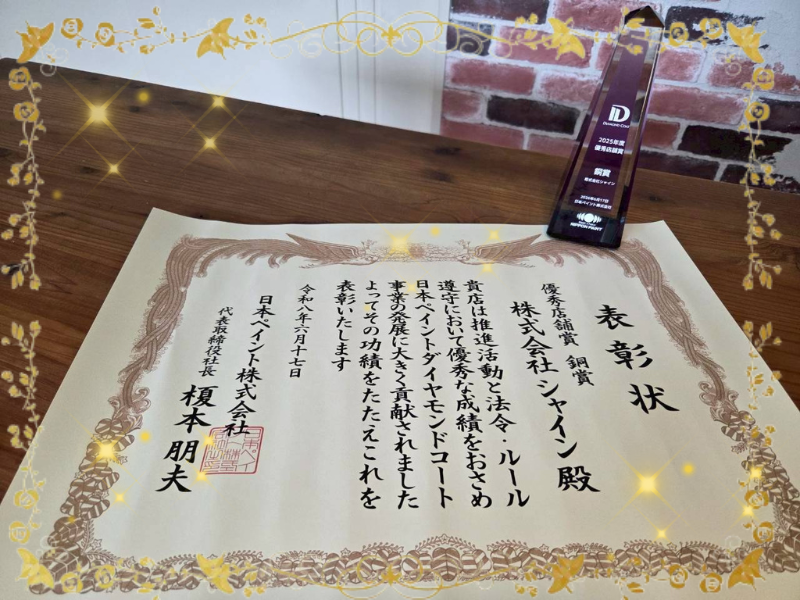 表彰状
優秀店舗賞 銅賞
株式会社シャイン殿
貴店は推進活動と法令・ルール
遵守において優秀な成績をおさめ
日本ペイントダイヤモンドコート
事業の発展に大きく貢献されました
よってその功績をたたえこれを
表彰いたします
令和八年六月十七日
日本ペイント株式会社
代表取締役社長 榎本朋夫
DIAMOND COAT
2025年度
優秀店舗賞
銅賞
株式会社シャイン
2026年6月17日
日本ペイント株式会社
NIPPON PAINT